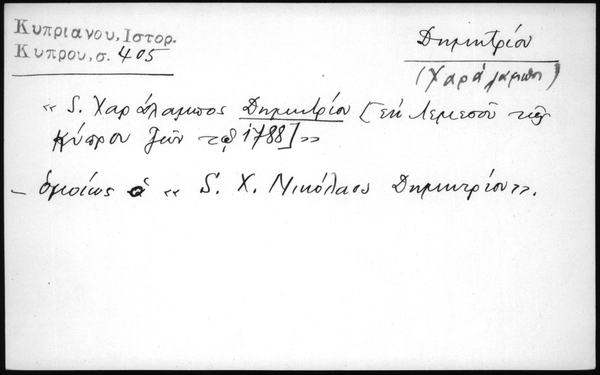 Κυπριανου, Ιστορ.
Κυπρου, σ. 405
Δημητρίου
(Χαράλαμπος)
« S. Χαράλαμπος Δημητρίου [ἐκ Λεμεσοῦ τῆς
Κύπρου ζῶν τῷ 1788] »
– ὁμοίως ὁ « S. Χ. Νικόλαος Δημητρίου ».